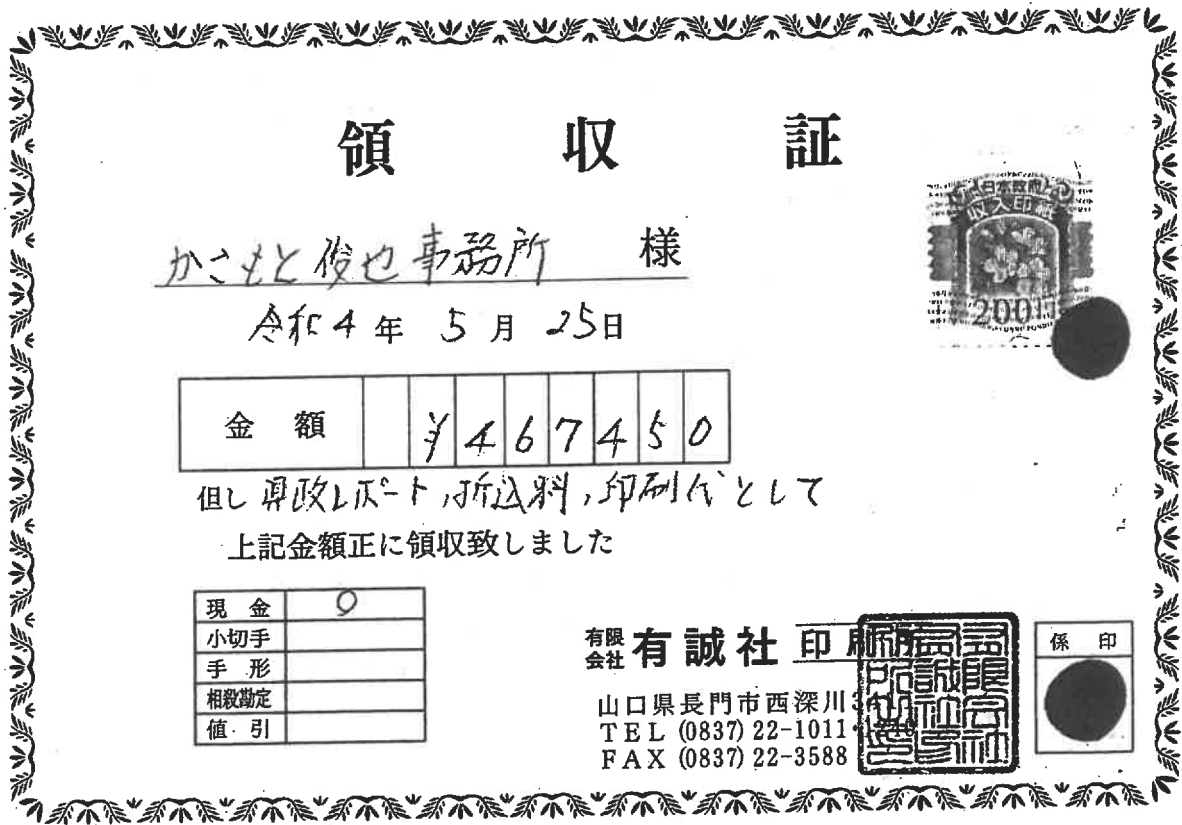 領収証
日本政府
収入印紙
200円
かさもと俊也事務所 様
令和4年5月25日
金額 ¥467450
但し 県政レポート,折込料,印刷代として
上記金額正に領収致しました
現金 ○
小切手
手形
相殺勘定
値引
有限会社 有誠社印刷所
山口県長門市西深川
TEL (0837) 22-1011
FAX (0837) 22-3588
係印